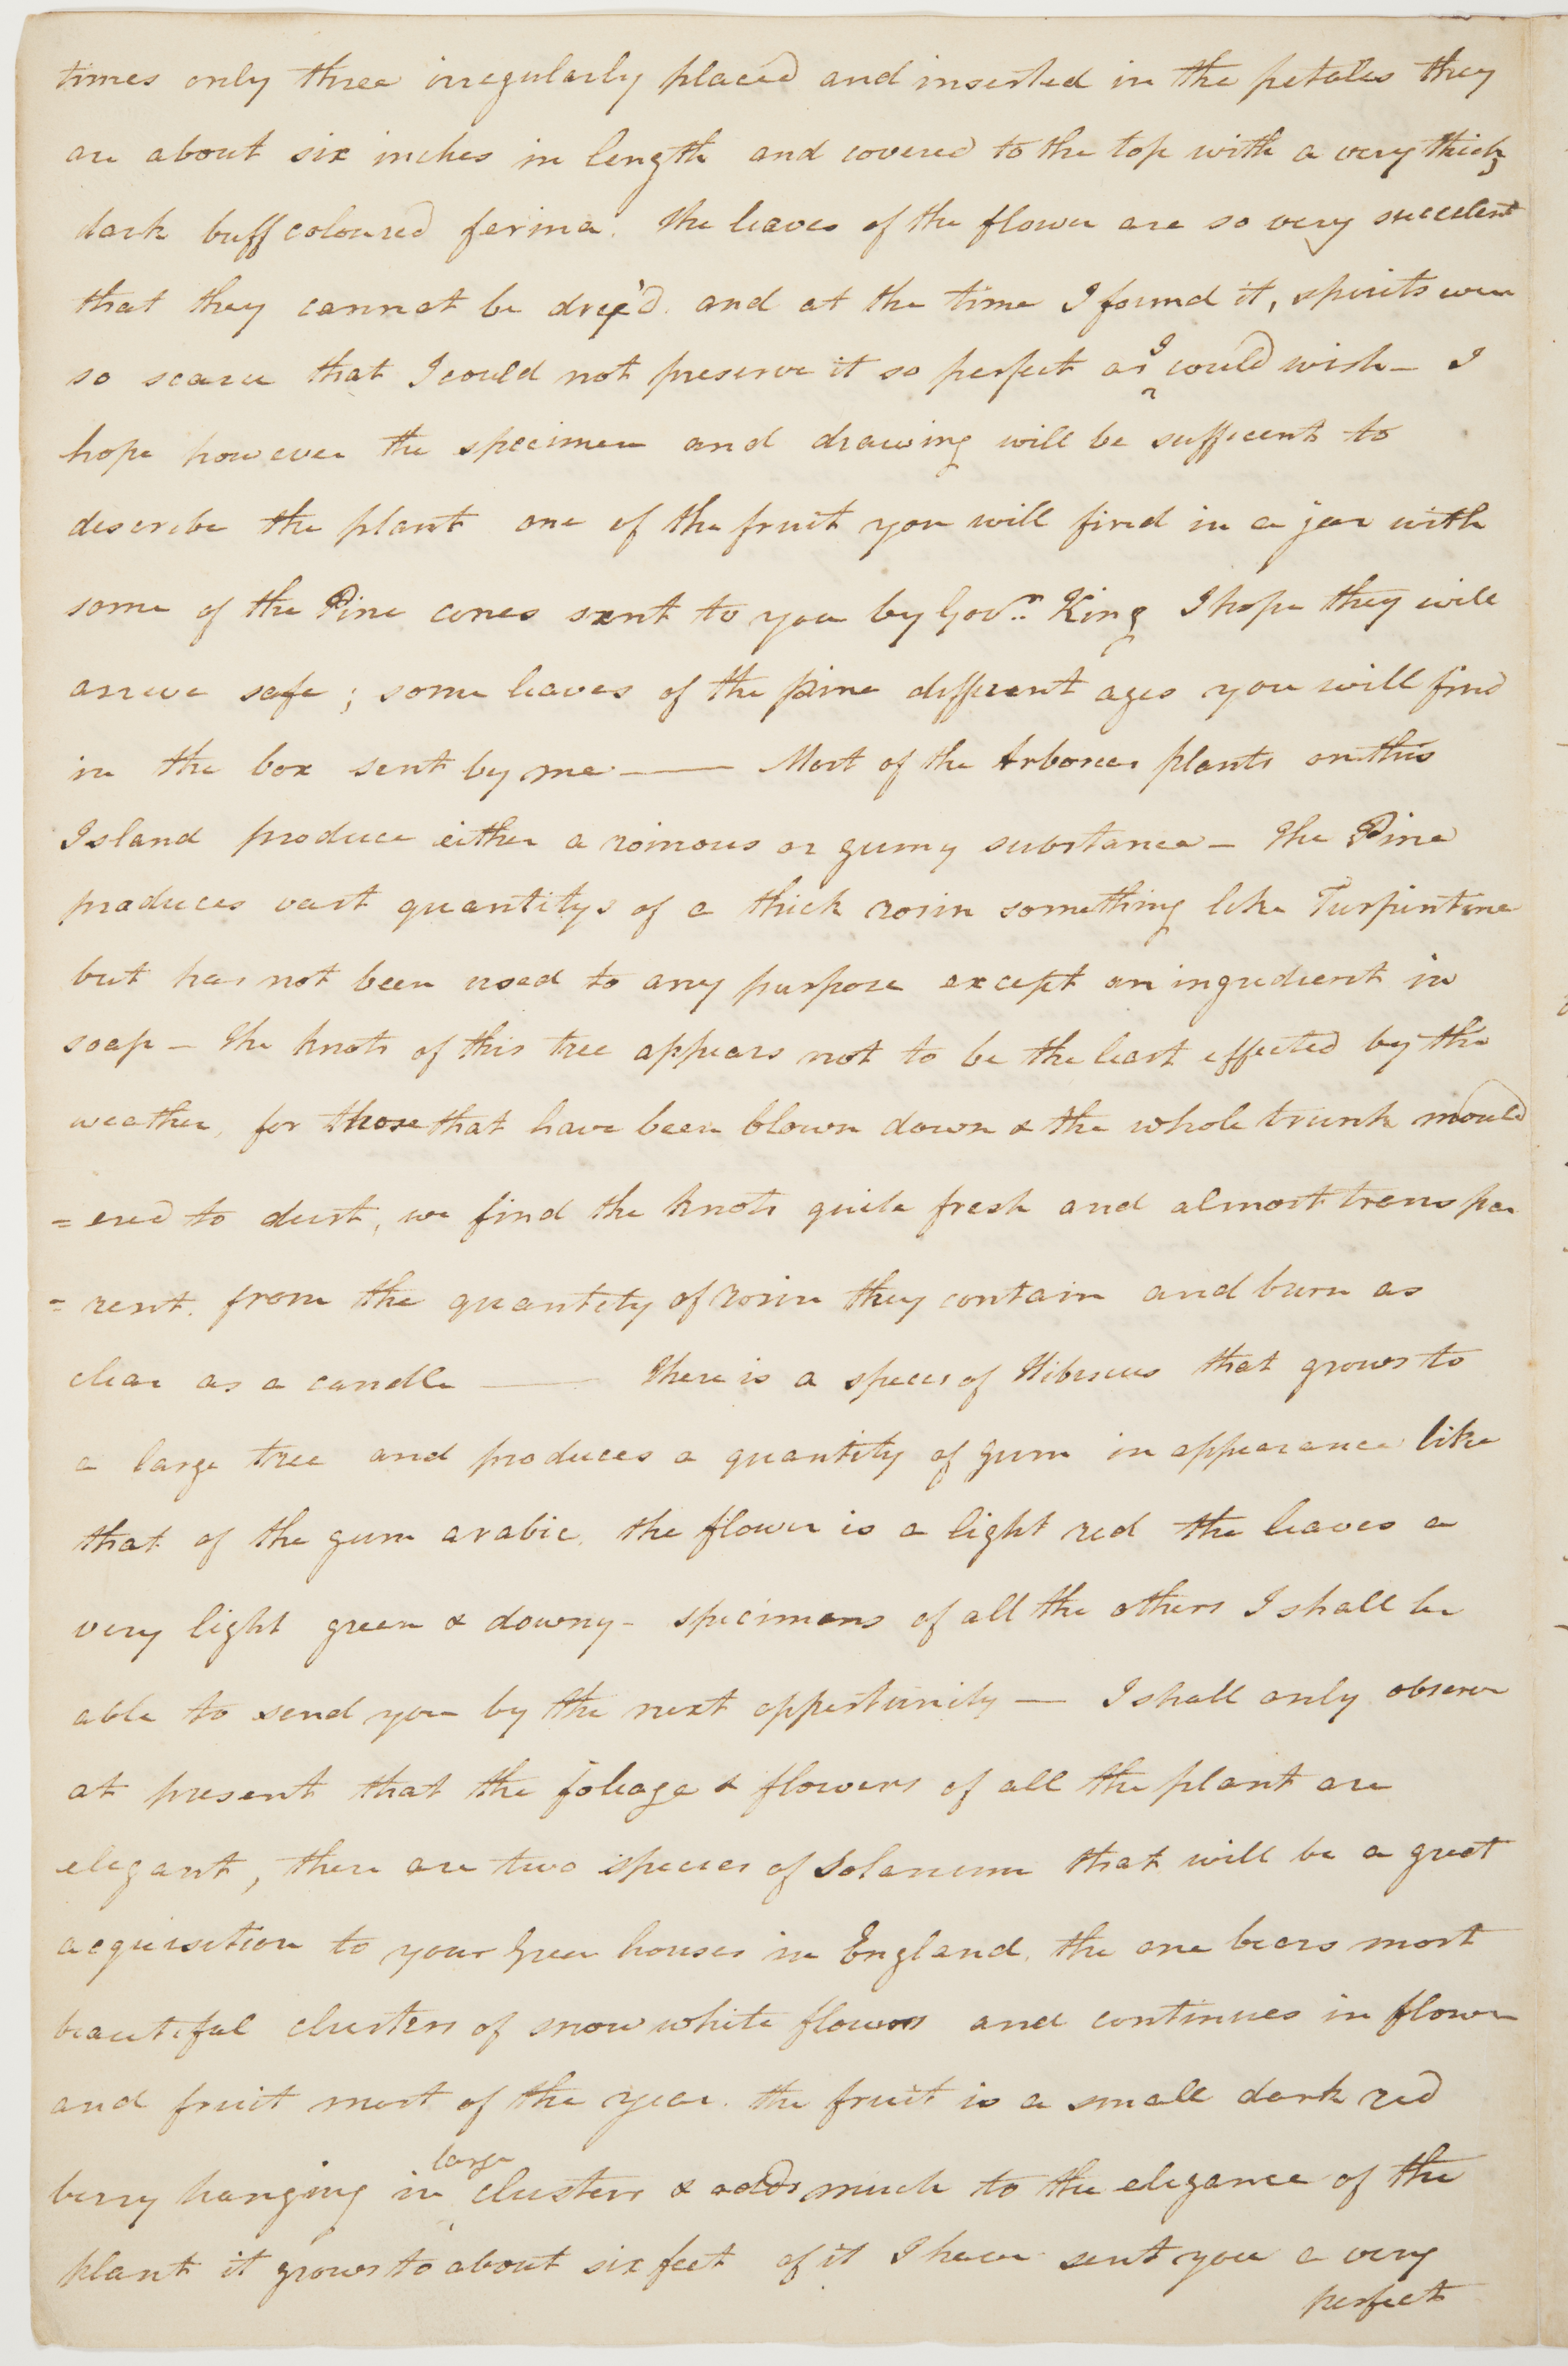 times only three irregularly placed and inserted in the petalles they
are about six inches in length and covered to the top with a very thick
dark buff coloured farina. The leaves of the flower are so very succulent
that they cannot be drye'd. and at the time I found it, spirits were
so scarce that I could not preserve it so perfect as I could wish — I
hope however the specimen and drawing will be sufficent to
describe the plant one of the fruit you will find in a jar with
some of the Pine cones sent to you by Govr. King I hope they will
arrive safe; some leaves of the pine different ages you will find
in the box sent by me —— Most of the Arborea plants on this
Island produce either a roinous or gumy substance — The Pine
produces vast quantitys of a thick rosin something like Turpintine
but has not been used to any purpose except an ingredient in
soap — The knots of this tree appears not to be the least effected by the
weather, for those that have been blown down & the whole trunk mould
= ered to dust, we find the knots quite fresh and almost transpa
= rent. from the quantity of rosin they contain and burn as
clear as a candle —— There is a species of Hibiscus that grows to
a large tree and produces a quantity of gum in appearance like
that of the gum arabic. the flower is a light red the leaves a
very light green & downy - specimens of all the others I shall be
able to send you by the next oppertunity — I shall only observe
at present that the foliage & flowers of all the plant are
elegant, there are two species of Solanum that will be a great
acquisition to your Green houses in England. the one bears most
beautiful clusters of snow white flowers and continues in flower
and fruit most of the year. the fruit is a small dark red
berry hanging in large clusters & adds much to the elegance of the
plant it grows to about six feet of it I have sent you a very
perfect